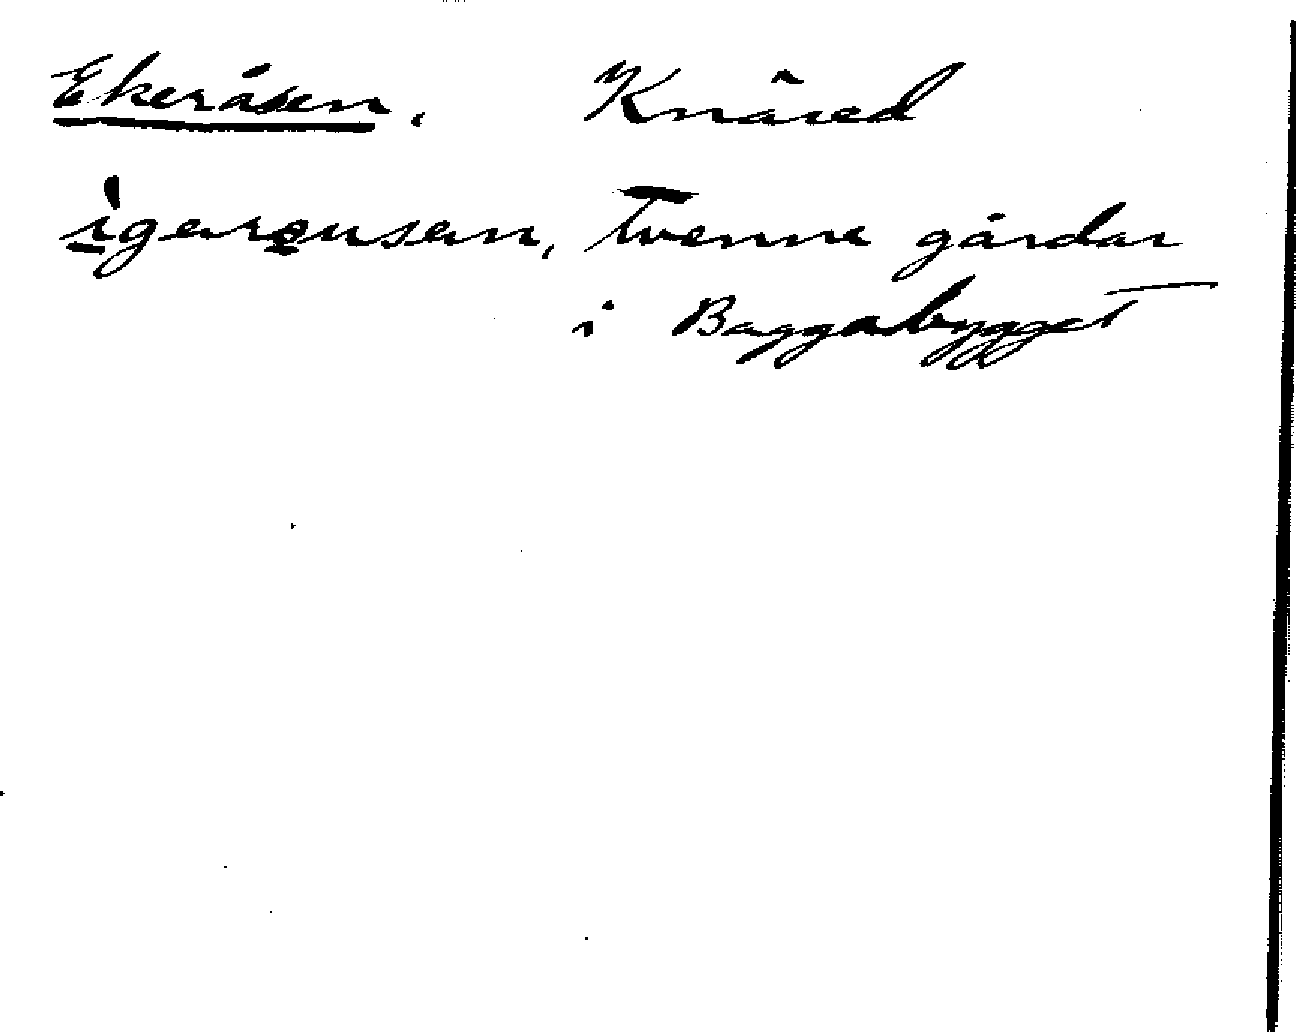 Ekeråsen. Knäred
i̱garo̱usen, Tvenne gårdar
i Baggabygget